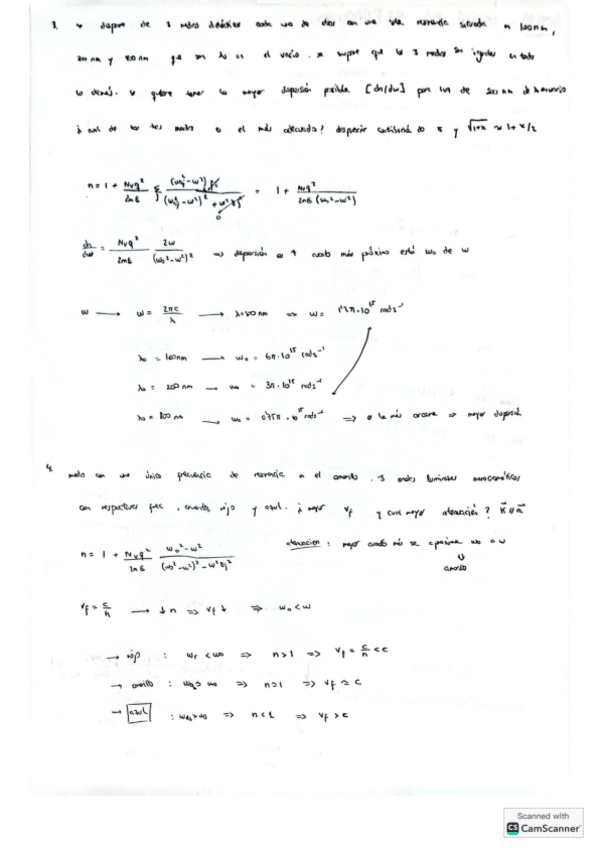 3. se dispone de 3 medios dieléctricos cada uno de ellos con una sola resonancia situada en 100nm,
200 nm y 800 nm que son λ0 en el vacío. se supone que los 3 medios son iguales en todo
lo demás. se quiere tener la mayor dispersión posible [dn/dw] para luz de 500 nm
¿ cual de los tres medios es el más adecuado? y √1+x ≈ 1+x/2
n = 1 + Nvq²/2mε Σ (w0j² - w²) / (w0j² - w²)² + w² = 1 + Nvq²/2mε (w0² - w²)
dn/dw = Nvq²/2mε 2w/(w0² - w²)² => dispersión es ↑ cuanto más próximo está w0 de w
w → w = 2πc/λ → λ=500nm => w = 1'2π·10¹⁵ rad s⁻¹
λ0 = 100nm → w0 = 6π·10¹⁵ rad s⁻¹
λ0 = 200 nm → w0 = 3π·10¹⁵ rad s⁻¹
λ0 = 800 nm → w0 = 0'75π·10¹⁵ rad s⁻¹ => es la más cercana => mayor dispersión
4. medio con una única frecuencia de resonancia en el amarillo. 3 ondas luminosas monocromáticas
con respectivas frec. amarillo, rojo y azul. ¿ mayor vf y cual mayor atenuación?
n = 1 + Nvq²/2mε w0² - w²/(w0² - w²)² - w²γj²
atenuacion : mayor cuando más se aproxima w0 a w
⇓
amarillo
vf = c/n → ↓n => vf ↑ => w0 < w
→ rojo : wr < w0 => n>1 => vf = c/n < c
→ amarillo : => n≃1 => vf ≃ c
→ azul : waz > w0 => n<1 => vf > c
Scanned with
CS CamScanner